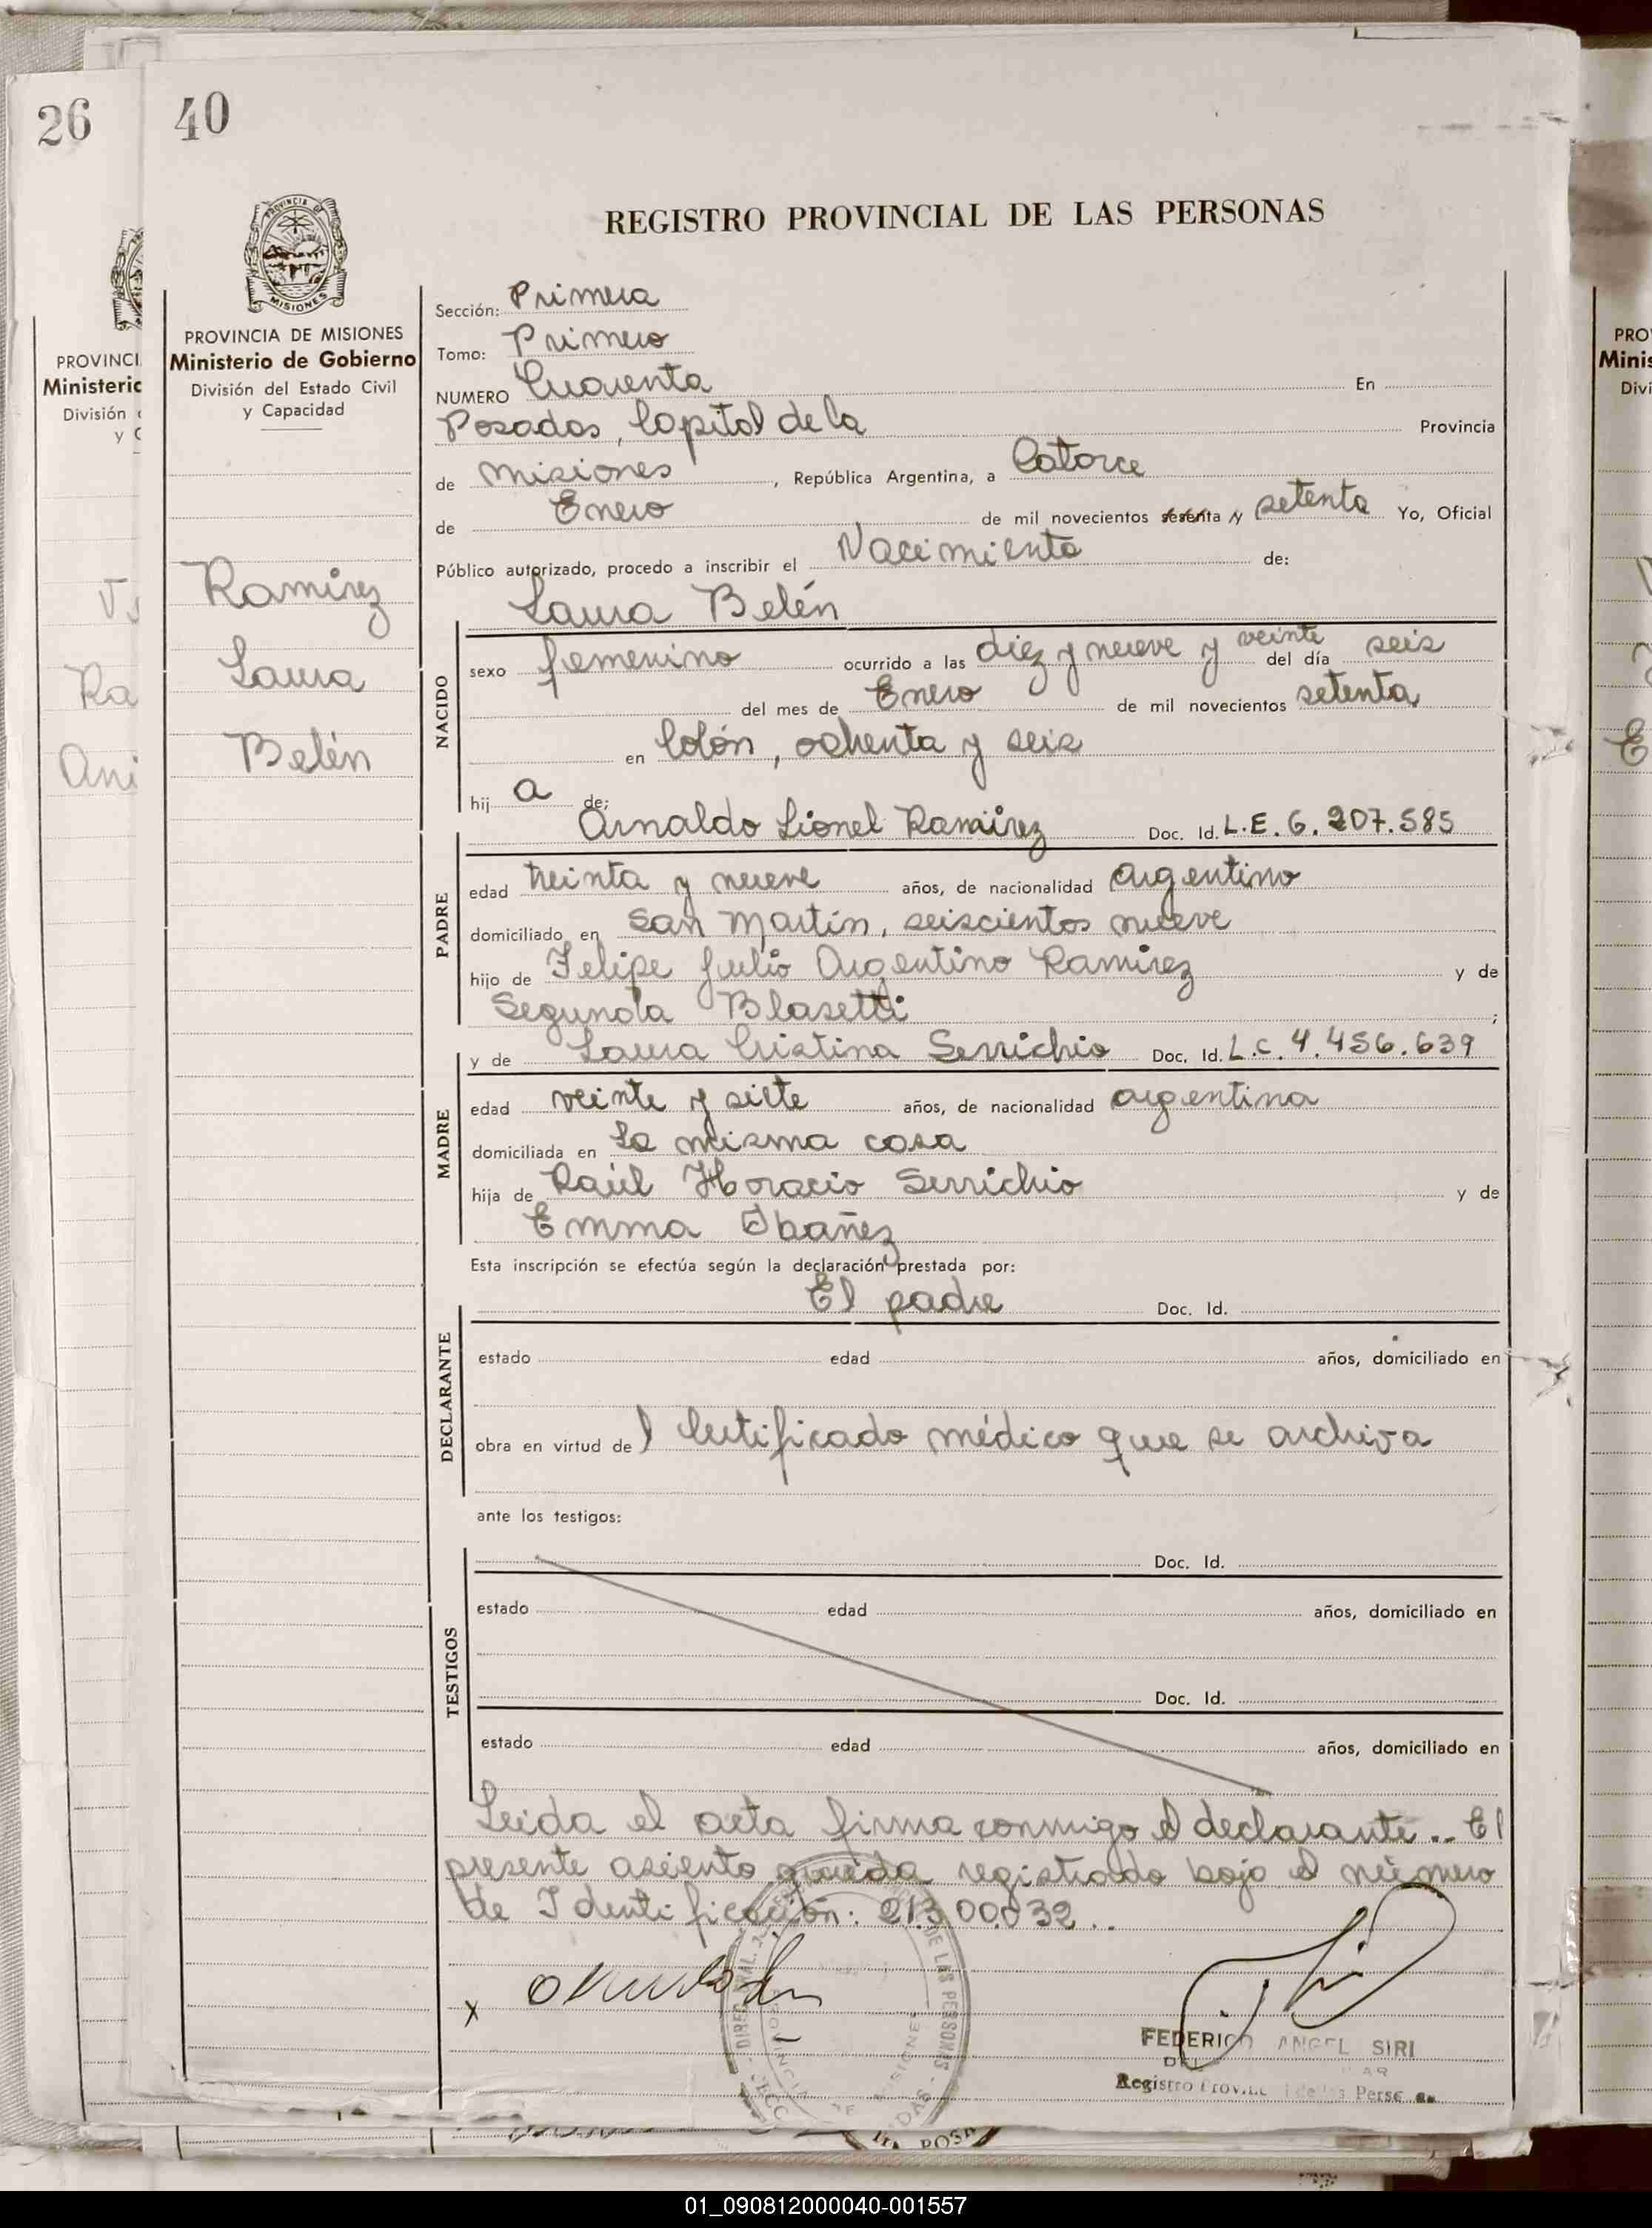 26
40
REGISTRO PROVINCIAL DE LAS PERSONAS
PROVINCIA DE MISIONES
Ministerio de Gobierno
División del Estado Civil
y Capacidad
Ramírez
Laura
Belén
Sección: Primera
Tomo: Primero
NUMERO Cuarenta En
Posadas, Capital de la Provincia
de Misiones, República Argentina, a Catorce
de Enero de mil novecientos sesenta y setenta Yo, Oficial
Público autorizado, procedo a inscribir el Nacimiento de:
Laura Belén
NACIDO
sexo femenino ocurrido a las diez y nueve y veinte del día seis
del mes de Enero de mil novecientos setenta
en Colón, ochenta y seis
hija de:
Arnaldo Lionel Ramírez Doc. Id. L.E. 6.207.585
PADRE
edad treinta y nueve años, de nacionalidad argentino
domiciliado en San Martín, seiscientos nueve
hijo de Felipe Julio Argentino Ramirez y de
Segunda Blasetti;
y de Laura Cristina Serrichio Doc. Id. L.C. 4.456.639
MADRE
edad veinte y siete años, de nacionalidad argentina
domiciliada en La misma casa
hija de Raúl Horacio Serrichio y de
Emma Ibañez
Esta inscripción se efectúa según la declaración prestada por:
El padre Doc. Id.
DECLARANTE
estado edad años, domiciliado en
obra en virtud del Certificado médico que se archiva
ante los testigos:
Doc. Id.
TESTIGOS
estado edad años, domiciliado en
Doc. Id.
estado edad años, domiciliado en
Leida el acta firma conmigo el declarante.. El
presente asiento queda registrado bajo el número
de Identificación: 21300.032..
x
FEDERICO ANGEL SIRI
01_090812000040-001557